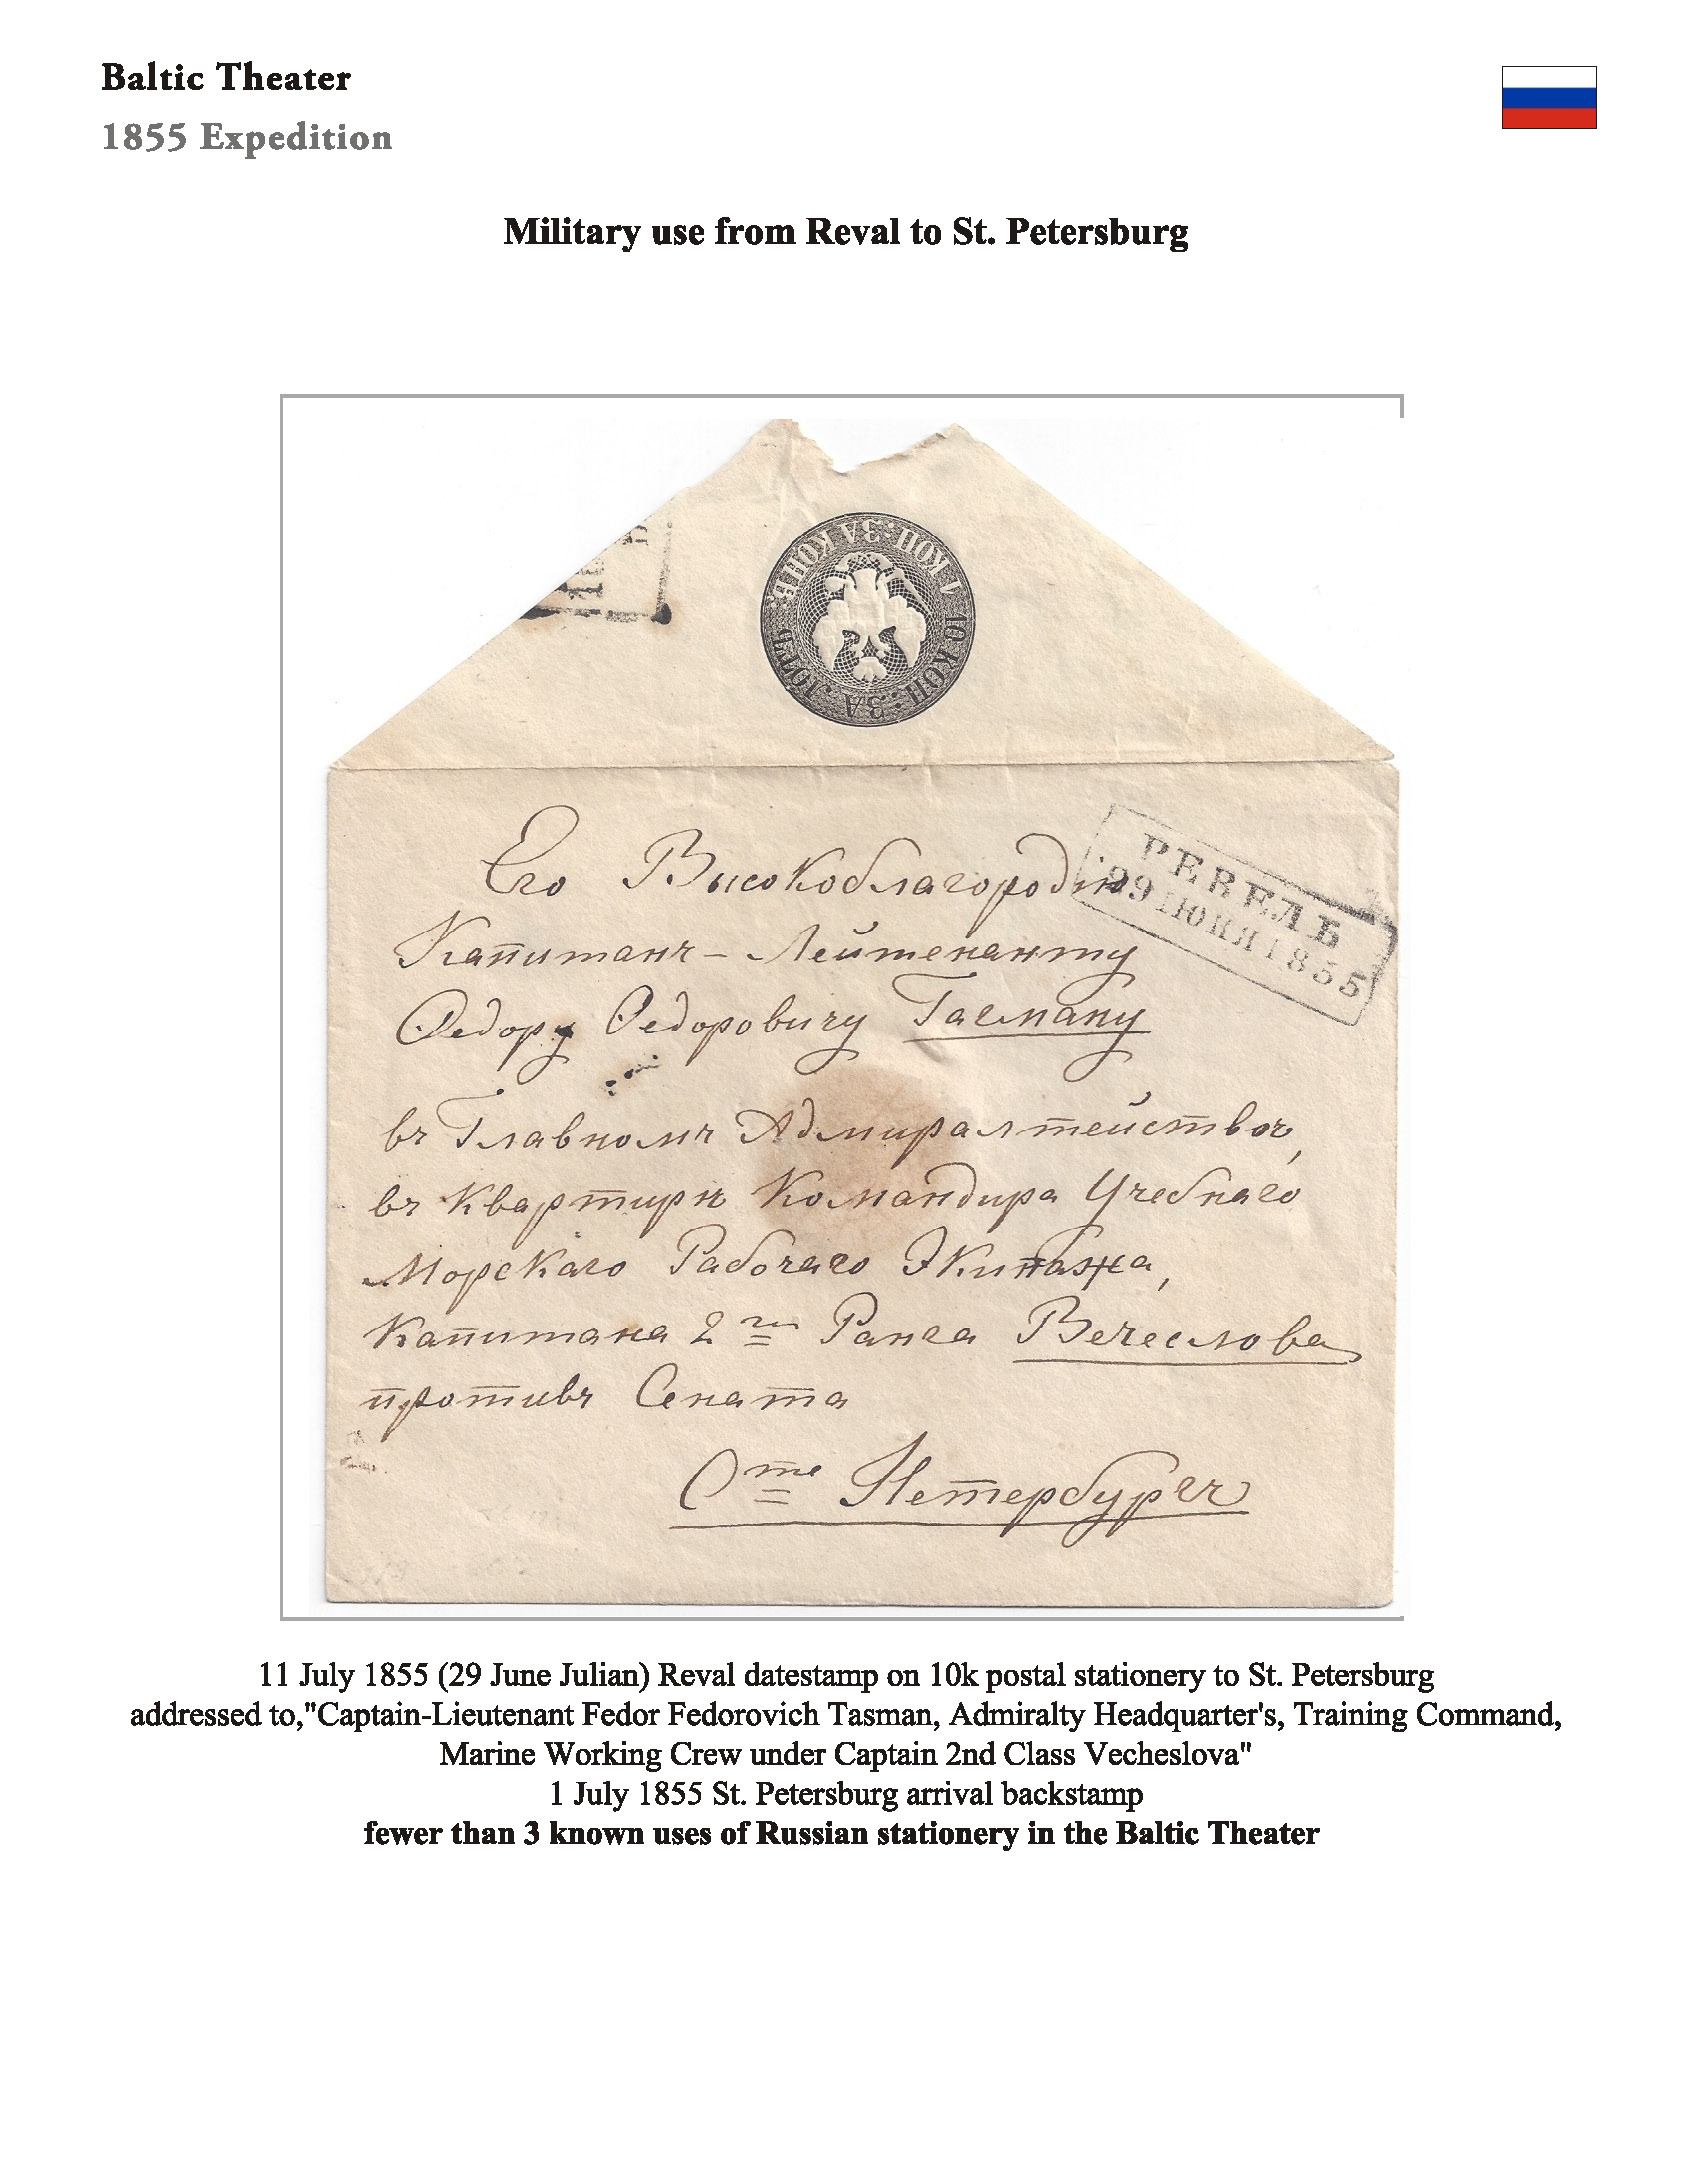 Baltic Theater
1855 Expedition
Military use from Reval to St. Petersburg
1 КОП: ЗА КОНВ:
10 КОП: ЗА ЛОТЪ
РЕВЕЛЬ
29 ІЮНЯ 1855
Его Высокоблагородію
Капитанъ-Лейтенанту
Ѳедору Ѳедоровичу Тасману
въ Главномъ Адмиралтействѣ,
въ квартирѣ Командира Учебнаго
Морскаго Рабочаго Экипажа,
Капитана 2го Ранга Вечеслова
противъ Сената
Сте Петербургъ
11 July 1855 (29 June Julian) Reval datestamp on 10k postal stationery to St. Petersburg
addressed to,"Captain-Lieutenant Fedor Fedorovich Tasman, Admiralty Headquarter's, Training Command,
Marine Working Crew under Captain 2nd Class Vecheslova"
1 July 1855 St. Petersburg arrival backstamp
fewer than 3 known uses of Russian stationery in the Baltic Theater